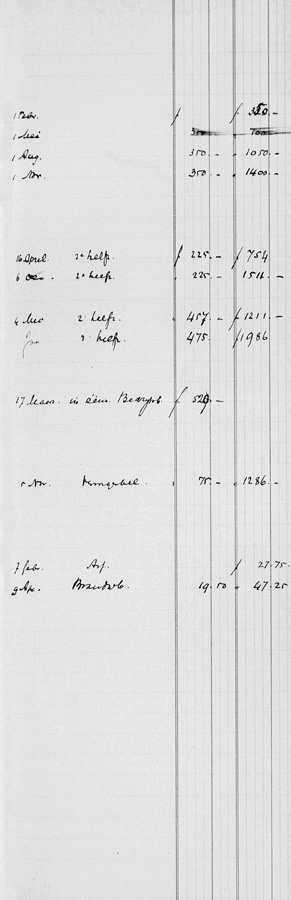 1 Febr. ƒ ƒ 350.-
1 Mei 700
1 Aug. 350.- 1050.-
1 Nov. 350.- 1400.-
16 April 2e helft ƒ 225.- ƒ 754
6 2e helft 225.- 1511.-
4 Mei 2e helft 457.- ƒ 1211.-
Jan helft 475. ƒ 1986
17 Maart in eens ƒ 529.-
5 Nov. 75.- 1286.-
7 Febr. Asf. ƒ 27.75.
9 Apr. Brandverb. 19.50 47.25